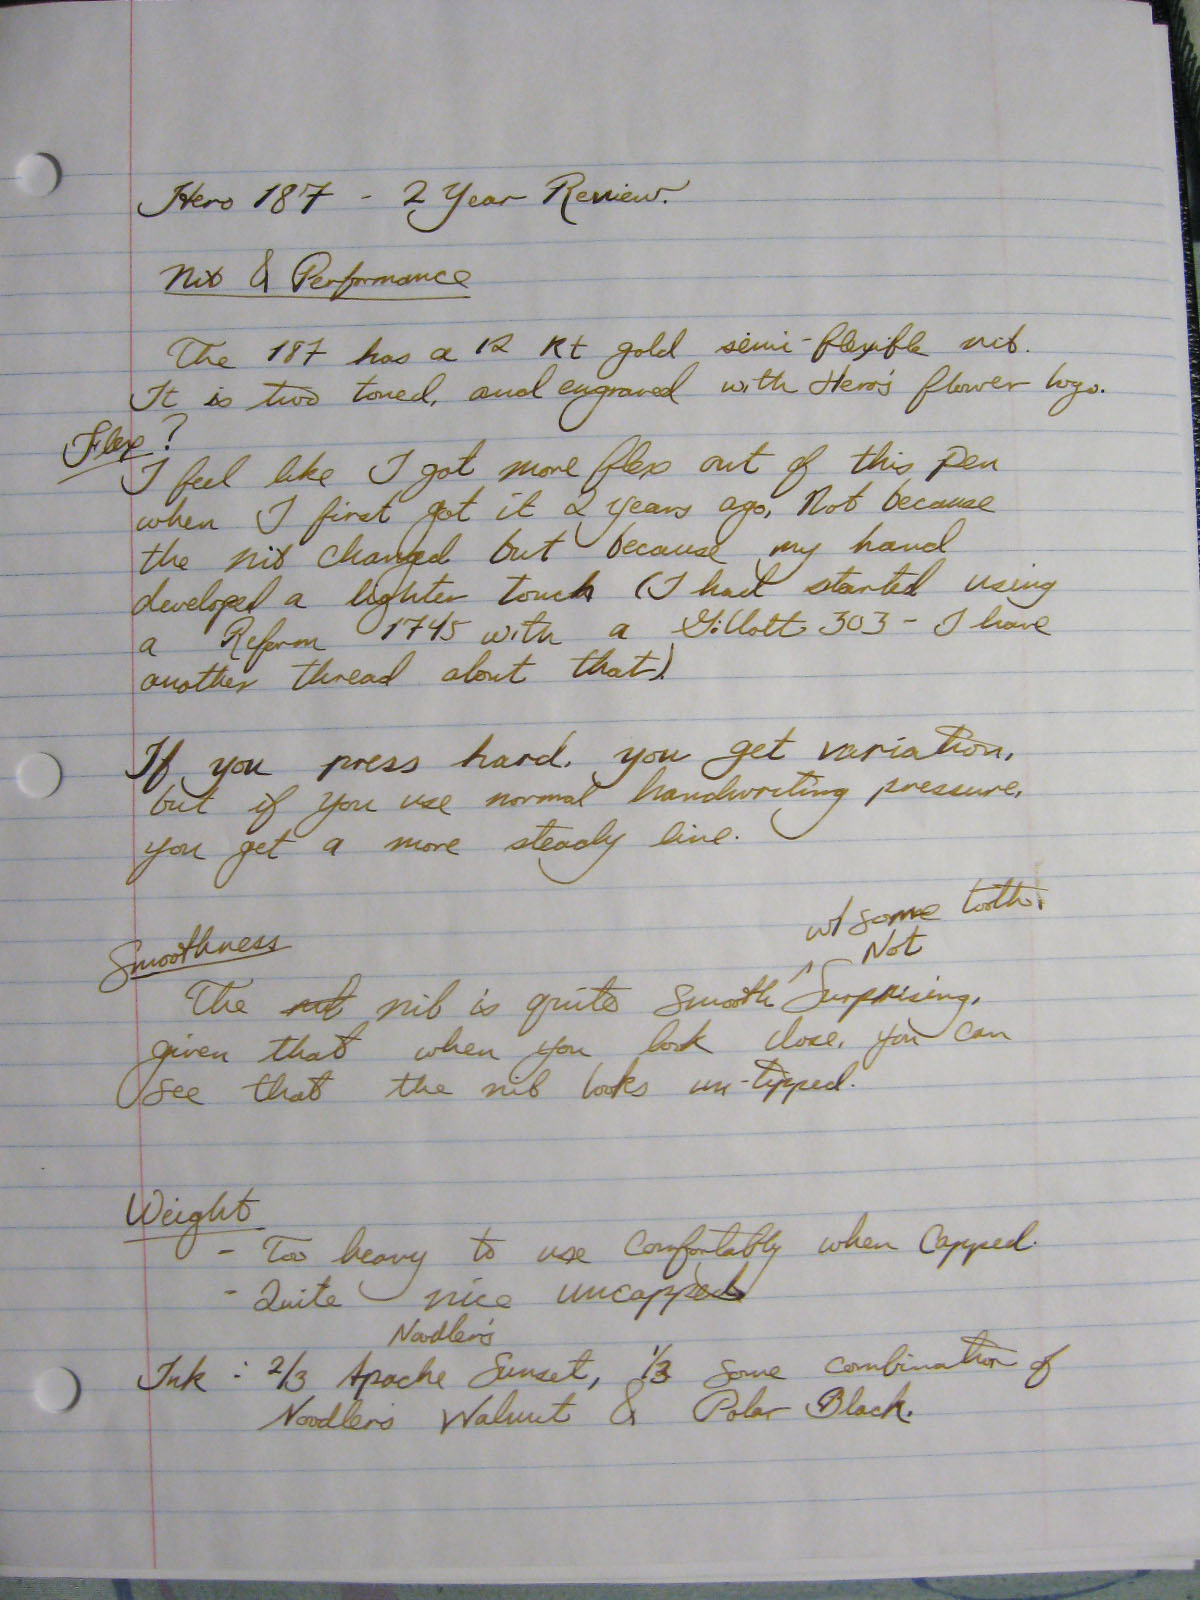 Hero 187 - 2 Year Review.
Nib & Performance
The 187 has a 12 Kt gold semi-flexible nib.
It is two toned, and engraved with Hero's flower logo.
Flex?
I feel like I got more flex out of this pen
when I first got it 2 years ago, Not because
the nib changed but because my hand
developed a lighter touch (I had started using
a Reform 1745 with a Gillott 303 - I have
another thread about that).
If you press hard, you get variation,
but if you use normal handwriting pressure,
you get a more steady line.
w/ some tooth.
Smoothness
Not
The nib is quite smooth ^ Surprising,
given that when you look close, you can
see that the nib looks un-tipped.
Weight
- Too heavy to use comfortably when capped.
- Quite nice uncapped
Noodler's
Ink : 2/3 Apache Sunset, 1/3 some combination of
Noodler's Walnut & Polar Black.